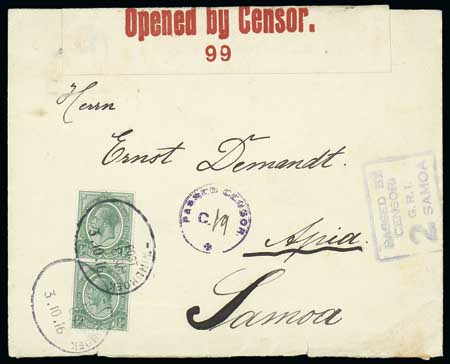 Opened by Censor.
99
Herrn
Ernst Demandt.
PASSED CENSOR
C.19
PASSED BY
CENSOR
2 G.R.I.
SAMOA
Apia.
Samoa
WINDHOEK
3.10.16
3.10.16